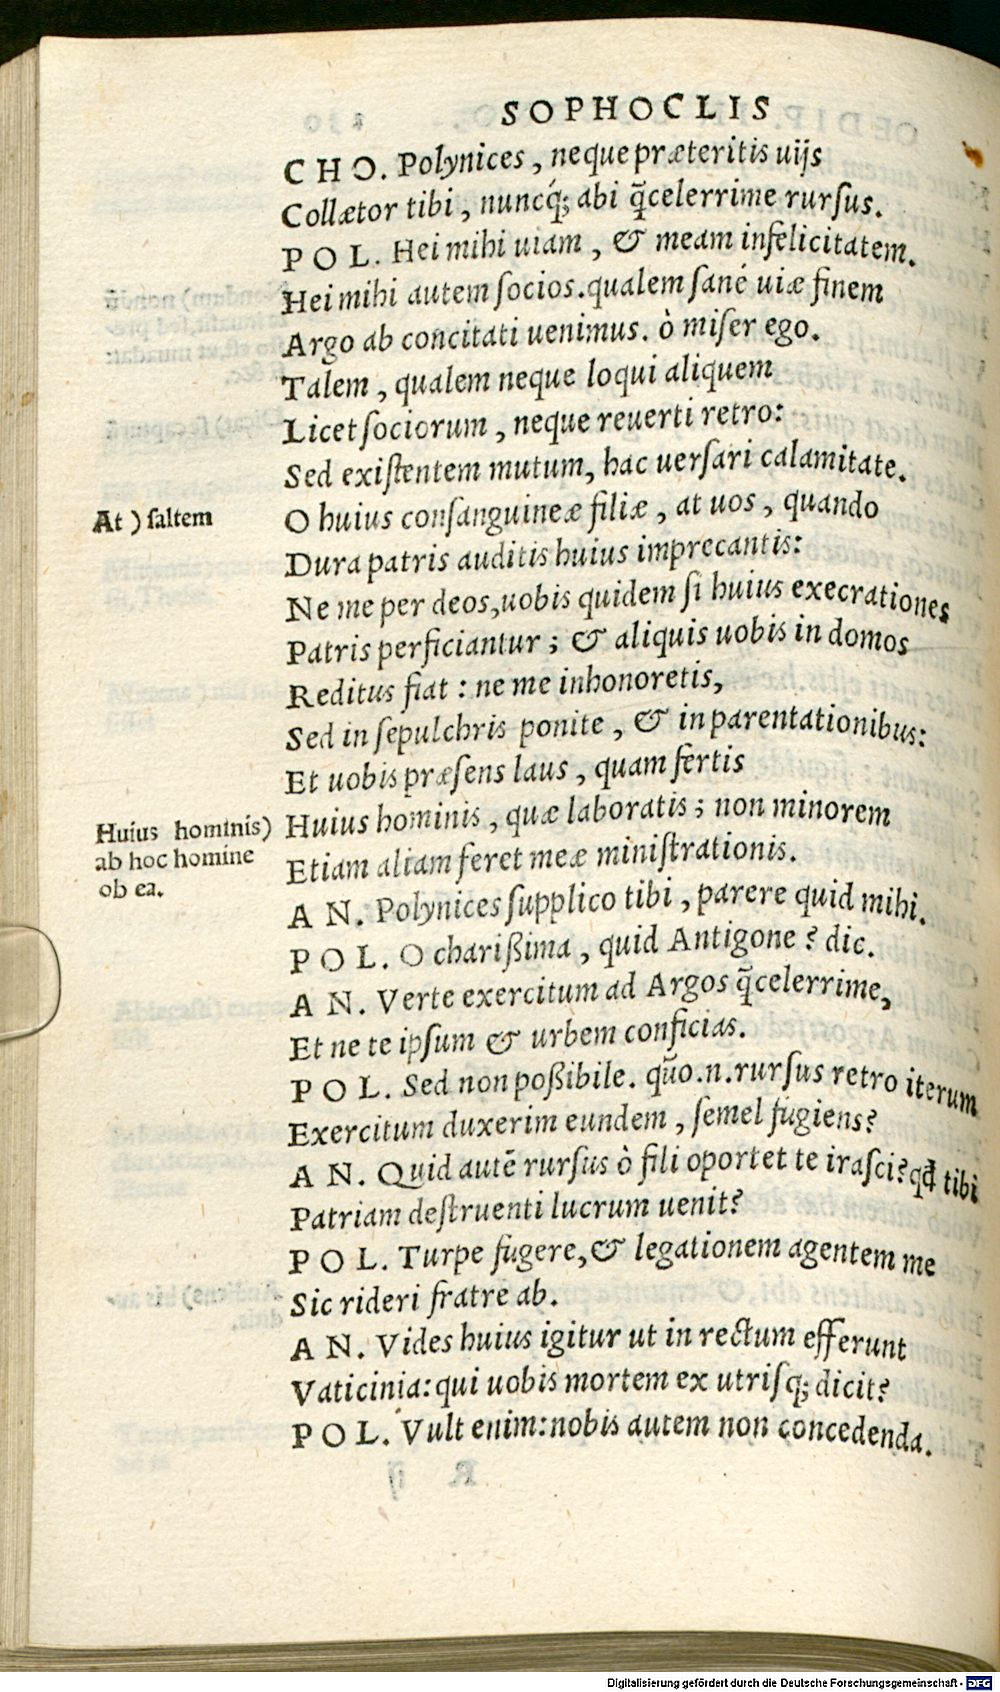 SOPHOCLIS
CHO. Polynices, neque præteritis uijs
Collætor tibi, nuncq́; abi q̃celerrime rursus.
POL. Hei mihi uiam, & meam infelicitatem.
Hei mihi autem socios. qualem sané uiæ finem
Argo ab concitati uenimus. ò miser ego.
Talem, qualem neque loqui aliquem
Licet sociorum, neque reuerti retro:
Sed existentem mutum, hac uersari calamitate.
At ) saltem
O huius consanguineæ filiæ, at uos, quando
Dura patris auditis huius imprecantis:
Ne me per deos, uobis quidem si huius execrationes
Patris perficiantur; & aliquis uobis in domos
Reditus fiat: ne me inhonoretis,
Sed in sepulchris ponite, & in parentationibus:
Et uobis præsens laus, quam fertis
Huius hominis)
ab hoc homine
ob ea.
Huius hominis, quæ laboratis; non minorem
Etiam aliam feret meæ ministrationis.
AN. Polynices supplico tibi, parere quid mihi.
POL. O charißima, quid Antigone? dic.
AN. Verte exercitum ad Argos q̃celerrime,
Et ne te ipsum & urbem conficias.
POL. Sed non poßibile. quõ.n.rursus retro iterum
Exercitum duxerim eundem, semel fugiens?
AN. Quid autẽ rursus ò fili oportet te irasci? qđ tibi
Patriam destruenti lucrum uenit?
POL. Turpe fugere, & legationem agentem me
Sic rideri fratre ab.
AN. Vides huius igitur ut in rectum efferunt
Vaticinia: qui uobis mortem ex utrisq; dicit?
POL. Vult enim: nobis autem non concedenda.
Digitalisierung gefördert durch die Deutsche Forschungsgemeinschaft - DFG